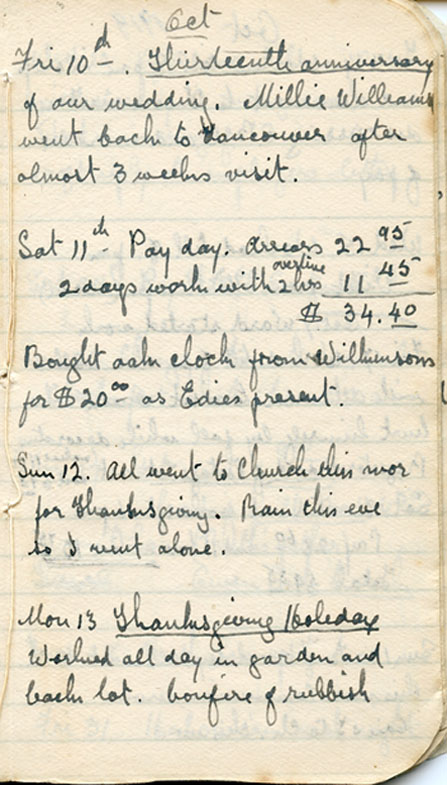 Oct
Fri 10th. Thirteenth anniversary
of our wedding. Millie Williams
went back to Vancouver after
almost 3 weeks visit.
Sat 11th Pay day. Arrears 22 95
overtime
2 days work with 2 hrs 11 45
$ 34.40
Bought oak clock from Wilkinsons
for $20 00 as Edies present.
Sun 12. All went to Church this mor
for Thanksgiving. Rain this eve
so I went alone.
Mon 13 Thanksgiving Holiday
Worked all day in garden and
back lot. bonfire of rubbish